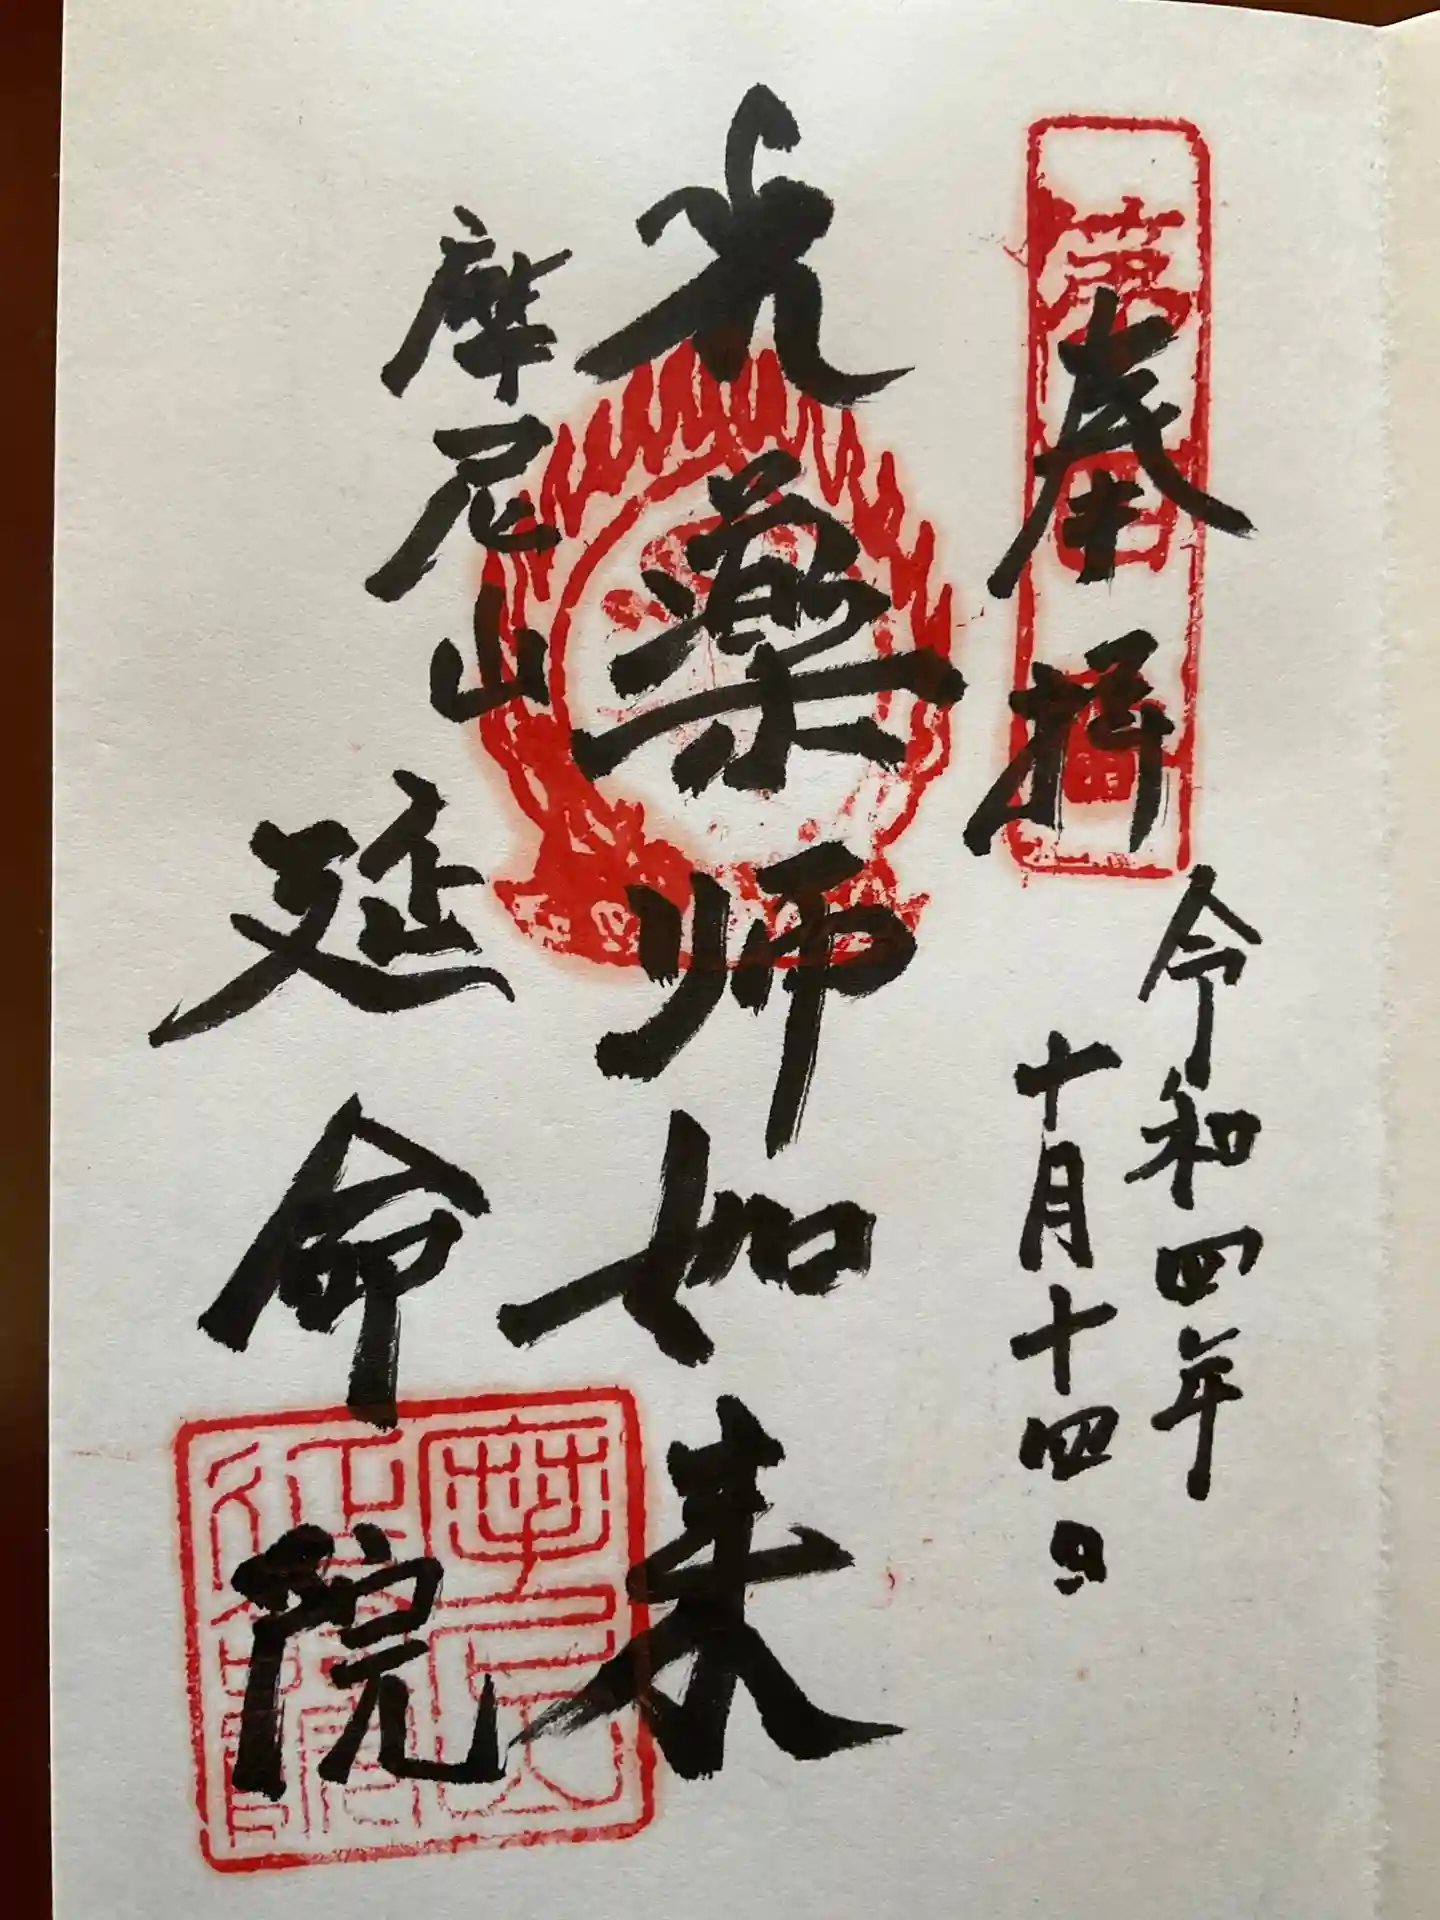 奉拝
令和四年
十月十四日
光薬師如来
摩尼山
延命院